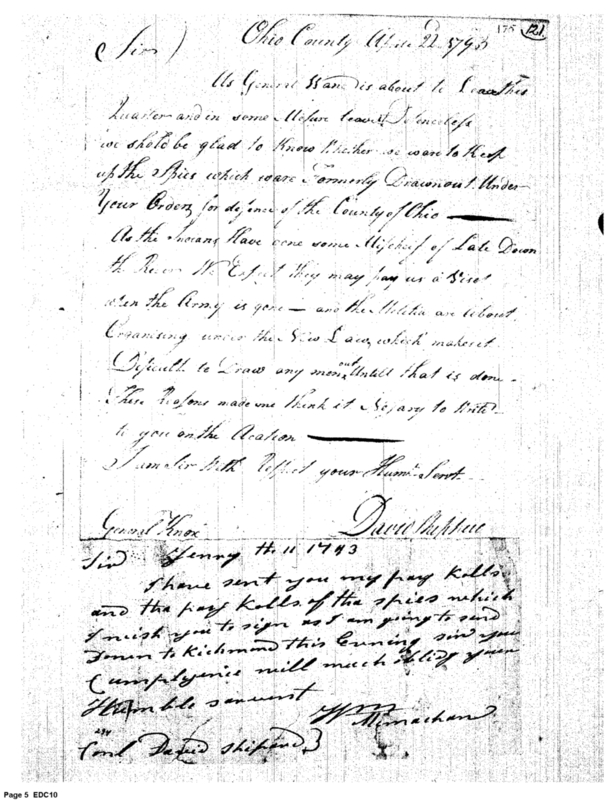 175 121
Ohio County Aprile 22 1793
(Sir)
As General Wane is about to Leave this
Quarter and in some Mesure leaves Defenceless
we shold be glad to Know Whether we ware to Keep
up the Spies which ware Formerly Drawn out Under
Your Orders for defence of the County of Ohio
As the Indians Have done some Mischief of Late Down
the River We Expect they may pay us a Viset
when the Army is gone — and the Militia are about
Organising under the New Law, which makes it
Dificult to Draw any men out Untill that is done
These Reasons made me think it Nesary to Write
to you on the Acation
I am Sir With Respect your Humᵉ Servt
General Knox David Shepherd
Sir Jenny the 11 1793
I have sent you my pay Rolls
and the pay Rolls of the spies which
I wish you to sign as I am going to send
Down to Richmond this Evning sir your
Cumplyence will much oblidg your
Humble sarvent
Wm Mcmachan
Conl David Shiperd}
Page 5 EDC10